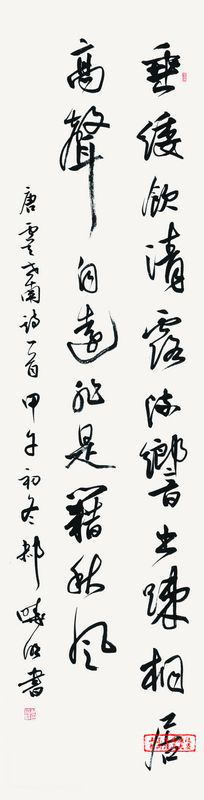 垂緌飲清露流響出疎桐居
高聲自遠非是籍秋風
唐虞世南詩一首甲午初冬郝曉明書